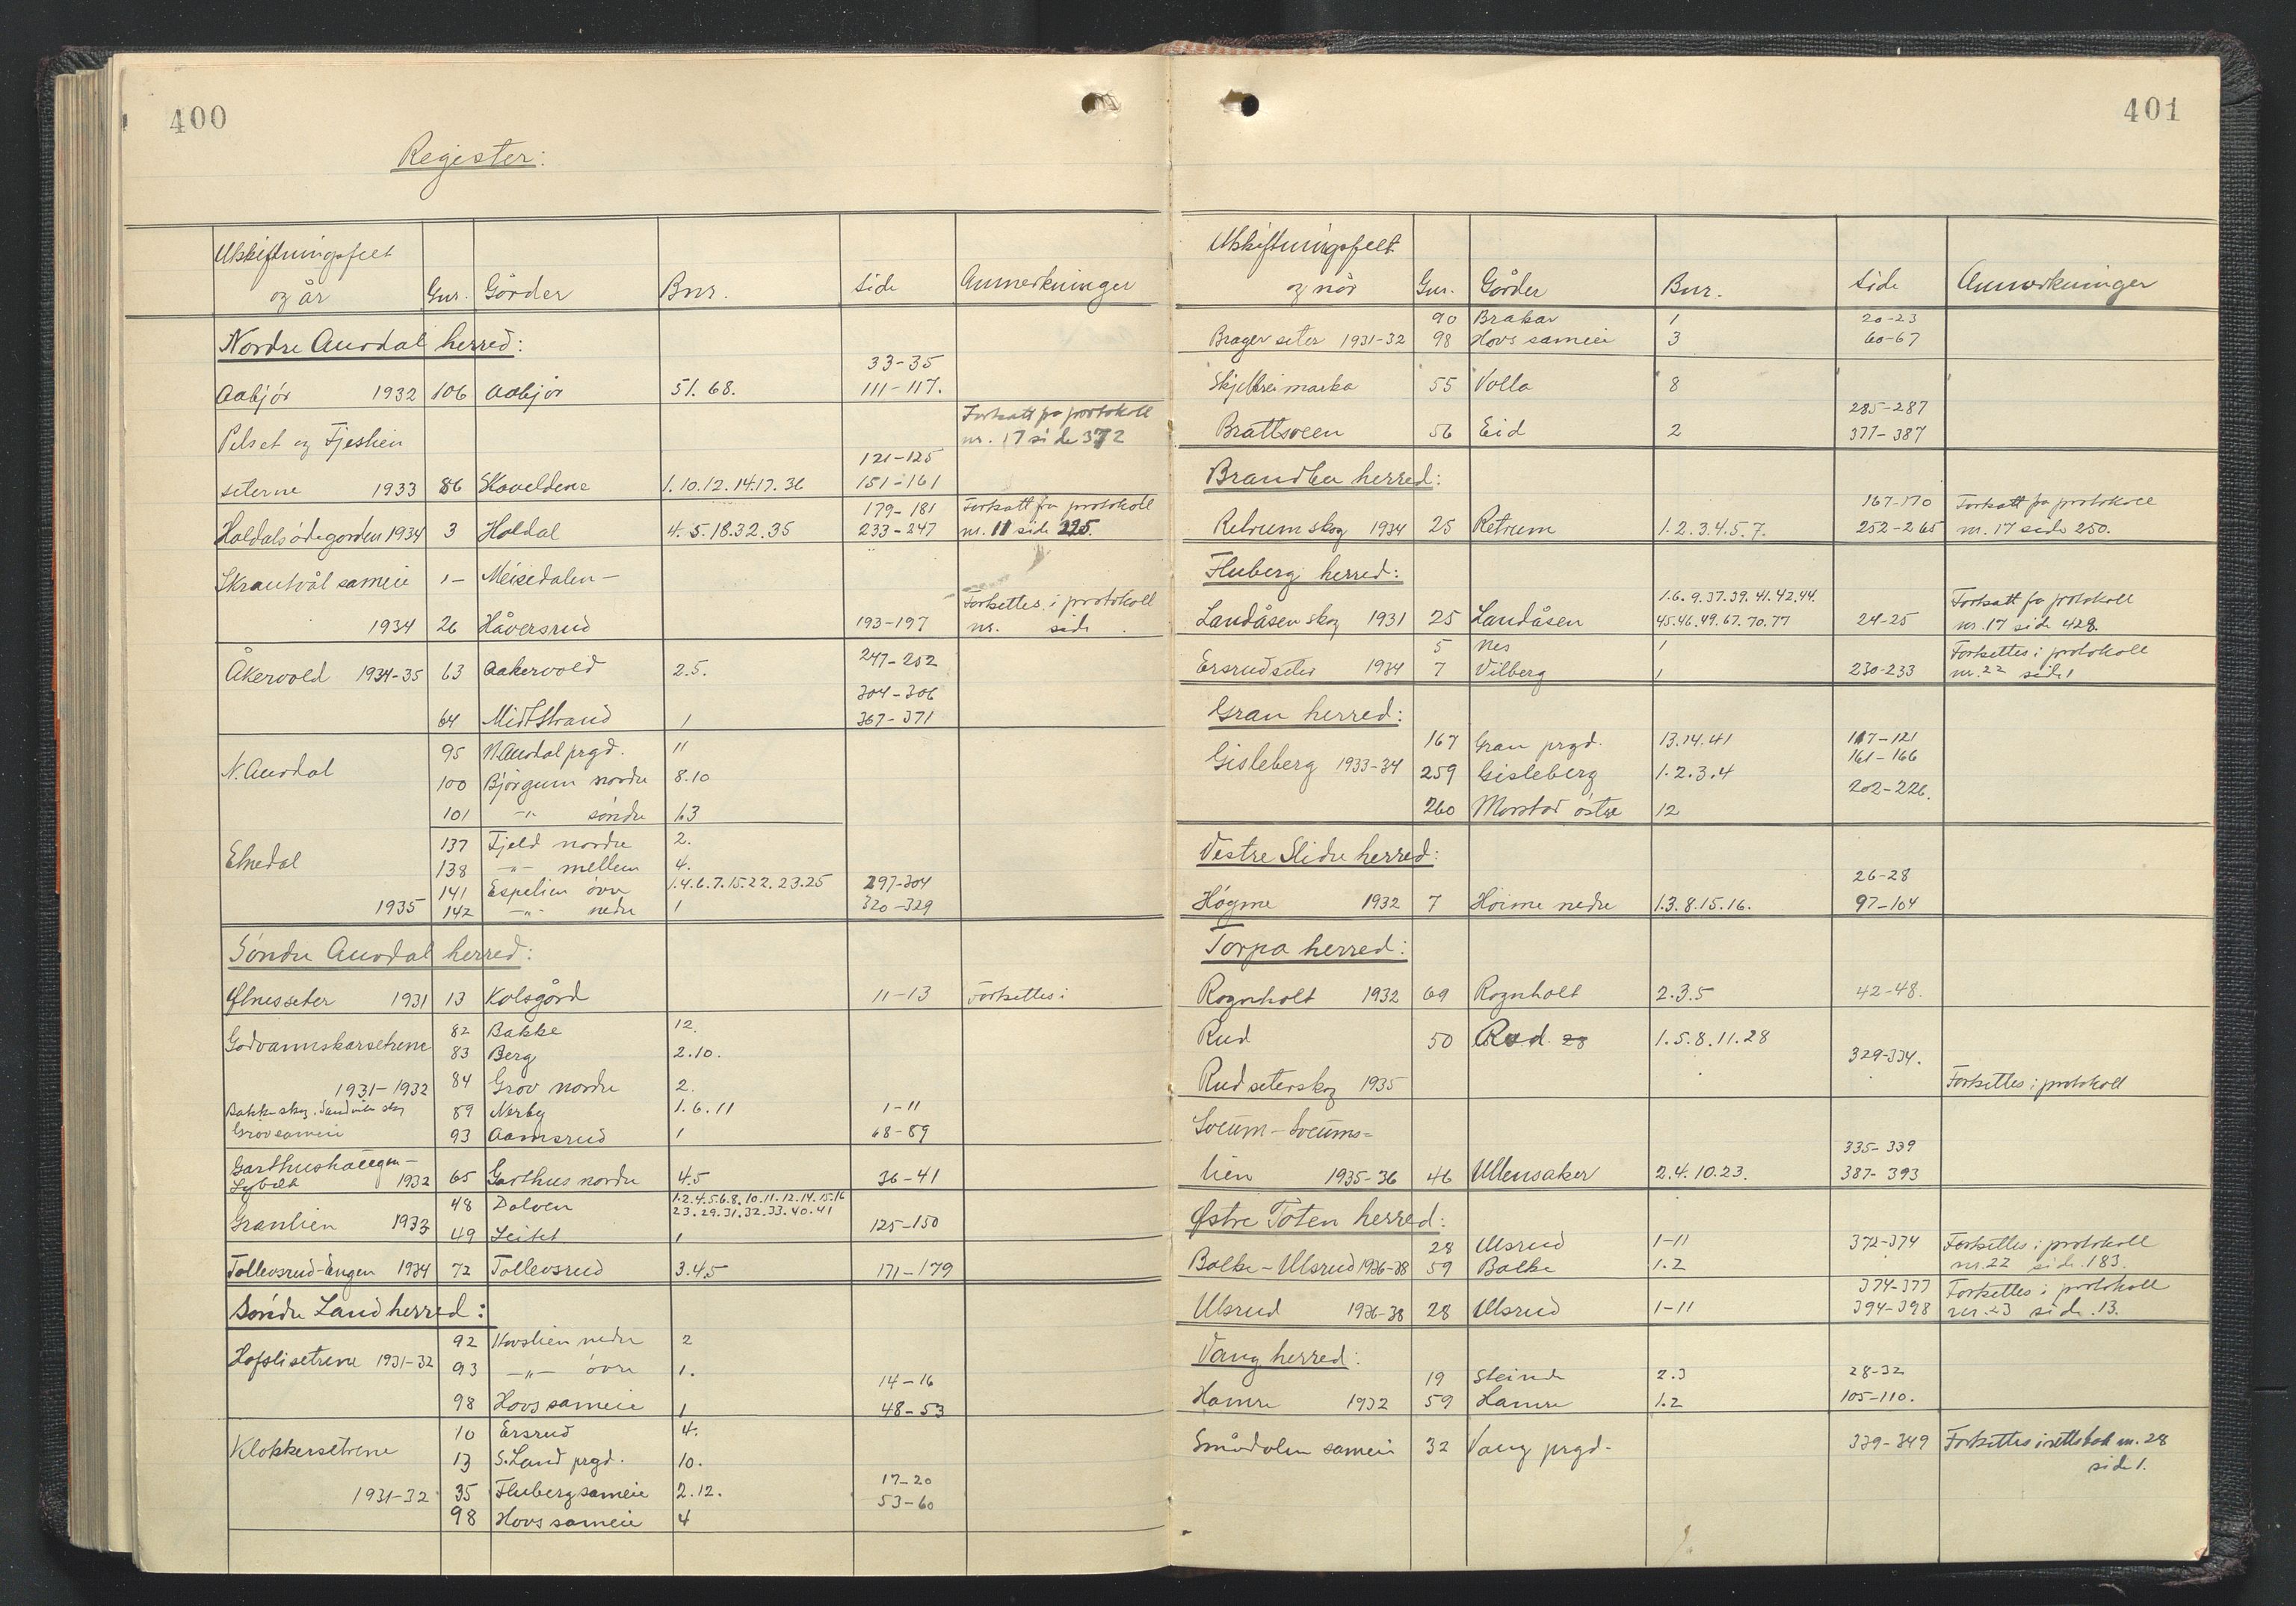 400
Register:
Utskiftningsfelt og år Gnr. Gårder Bnr. Side Anmerkninger
Nordre Aurdal herred:
33-35
Aabjør 1932 106 Aabjør 51. 68. 111-117.
Fortsatt fra protokoll
Pelset og Fjeslien nr. 17 side 372
121-125
seterne 1933 86 Skoveldene 1. 10. 12. 14. 17. 36 151-161
179-181 Fortsatt fra protokoll
Haldalsødegorden 1934 3 Haldal 4. 5. 18. 32. 35 233-247 nr. 11 side 225.
Skrautvål sameie 1- Meisedalen-
Fortsettes i protokoll
1934 26 Håversrud 193-197 nr. side .
Åkervold 1934-35 63 Aakervold 2.5. 247-252
304-306
64 Midtstrand 1 367-371
95 N. Aurdal prgd. 11
N. Aurdal
100 Bjørgum nordre 8.10
101 -"- søndre 63
137 Fjeld nordre 2.
Elnedal
138 -"- mellem 4.
141 Espelien øvre 1.4.6.7.15.22.23.25 297-304
1935 142 -"- nedre 1 320-329
Søndre Aurdal herred:
Ølnesseter 1931 13 Kolsgård 11-13 Fortsettes i
82 Bakke 12.
Godvannskarsetrene
83 Berg 2.10.
1931-1932 84 Grov nordre 2.
Bakke skog. Sandviken skog 89 Nerby 1.6.11 1-11
Grov sameie 93 Aamsrud 1 68-89
Garthushaugen-
Lybeck 1932 65 Garthus nordre 4.5 36-41
48 Dalven 1.2.4.5.6.8.10.11.12.14.15.16
23.29.31.32.33.40.41
Granlien 1933 125-150
49 Leite 1
Tollevsrud-Engen 1934 72 Tollevsrud 3.4.5 171-179
Søndre Land herred:
92 Hovslien nedre 2
Hofslisetrene 1931-32
93 -"- øvre 1.
14-16
98 Hovs sameie 1 48-53
10 Ersrud 4.
Klokkersetrene
13 S. Land prgd. 10.
17-20
1931-32 35 Fluberg sameie 2.12.
53-60
98 Hovs sameie 4
401
Utskiftningsfelt og når Gnr. Gårder Bnr. Side Anmerkninger
90 Brakar 1 20-23
Brager seter 1931-32 98 Hovs sameie 3 60-67
Skjelbreimarka 55 Volla 8
285-287
Brattsveen 56 Eid 2 377-387
Brandbu herred:
167-170 Fortsatt fra protokoll
Retrum skog 1934 25 Retrum 1.2.3.4.5.7. 252-265 nr. 17 side 250.
Fluberg herred:
1.6.9.37.39.41.42.44. Fortsatt fra protokoll
Landåsen skog 1931 25 Landåsen 45.46.49.67.70.77 24-25 nr. 17 side 428.
5 Nes 1 Fortsettes i protokoll
Ersrudseter 1934 7 Vilberg 1 230-233 nr. 22 side 1
Gran herred:
167 Gran prgd. 13.14.41 117-121
161-166
Gisleberg 1933-34 259 Gisleberg 1.2.3.4
202-226.
260 Morstad østre 12
Vestre Slidre herred:
26-28
Høgme 1932 7 Høime nedre 1.3.8.15.16. 97-104
Torpa herred:
Rognholt 1932 69 Rognholt 2.3.5 42-48.
Rud 50 Rud 28 1.5.8.11.28
329-334.
Rud seterskog 1935 Fortsettes i protokoll
Soeum-Soeums=
335-339
lien 1935-36 46 Ullensaker 2.4.10.23. 387-393
Østre Toten herred:
28 Ulsrud 1-11 372-374 Fortsettes i protokoll
Balke-Ulsrud 1936-38 59 Balke 1.2 nr. 22 side 183.
374-377 Fortsettes i protokoll
Ulsrud 1936-38 28 Ulsrud 1-11 394-398 nr. 23 side 13.
Vang herred:
19 Steinde 2.3 28-32
Hamre 1932 59 Hamre 1.2 105-110.
Smådølen sameie 32 Vang prgd. 339-349 Fortsettes i rettsbok nr. 28
side 1.